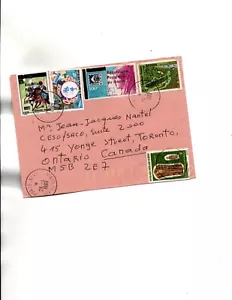 Mr. Jean-Jacques Nantel
CESO/SACO, Suite 2000
415 Yonge Street, Toronto,
Ontario Canada
M5B 2E7